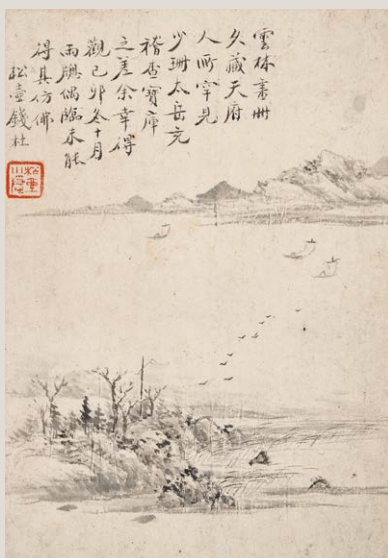 雲林畫冊
久藏天府
人所罕見
少珊太岳充
稽查寶庫
之差余幸得
觀己卯冬十月
雨牕偶臨未能
得其仿佛
松壺錢杜